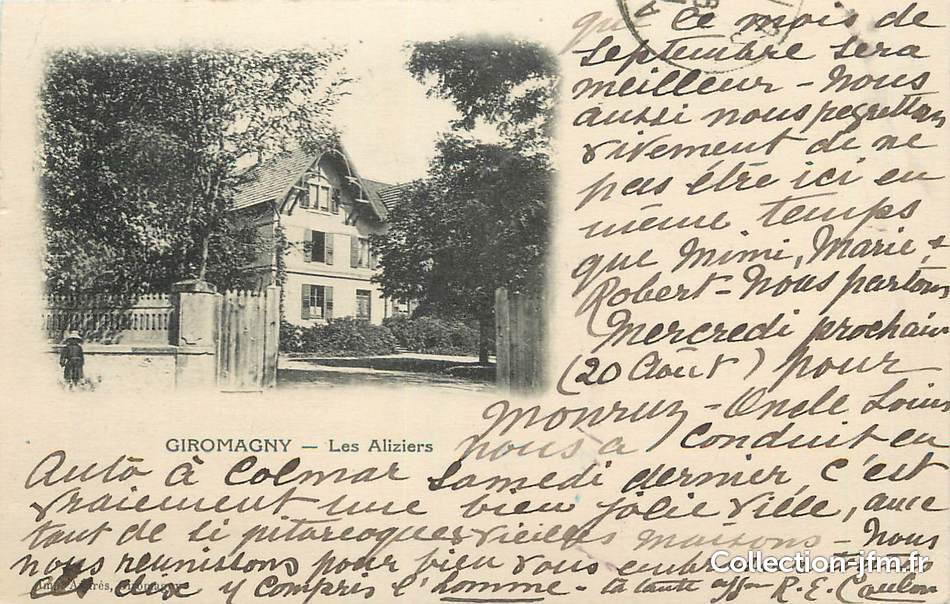 que ce mois de
Septembre sera
meilleur - Nous
aussi nous regrettons
vivement de ne
pas être ici en
même temps
que Mimi, Marie, &
Robert - Nous partons
Mercredi prochain
(20 Août) pour
Monruz - Oncle Louis
nous a conduit en
GIROMAGNY — Les Aliziers
Auto à Colmar Samedi dernier, c'est
vraiement une bien jolie ville, avec
tant de si pitoresques vieilles maisons - Nous
nous reunissons pour bien vous
y compris l'homme - ta tante affnée R. E. Coulon
Imp. Andrés, Giromagny
Collection-jfm.fr